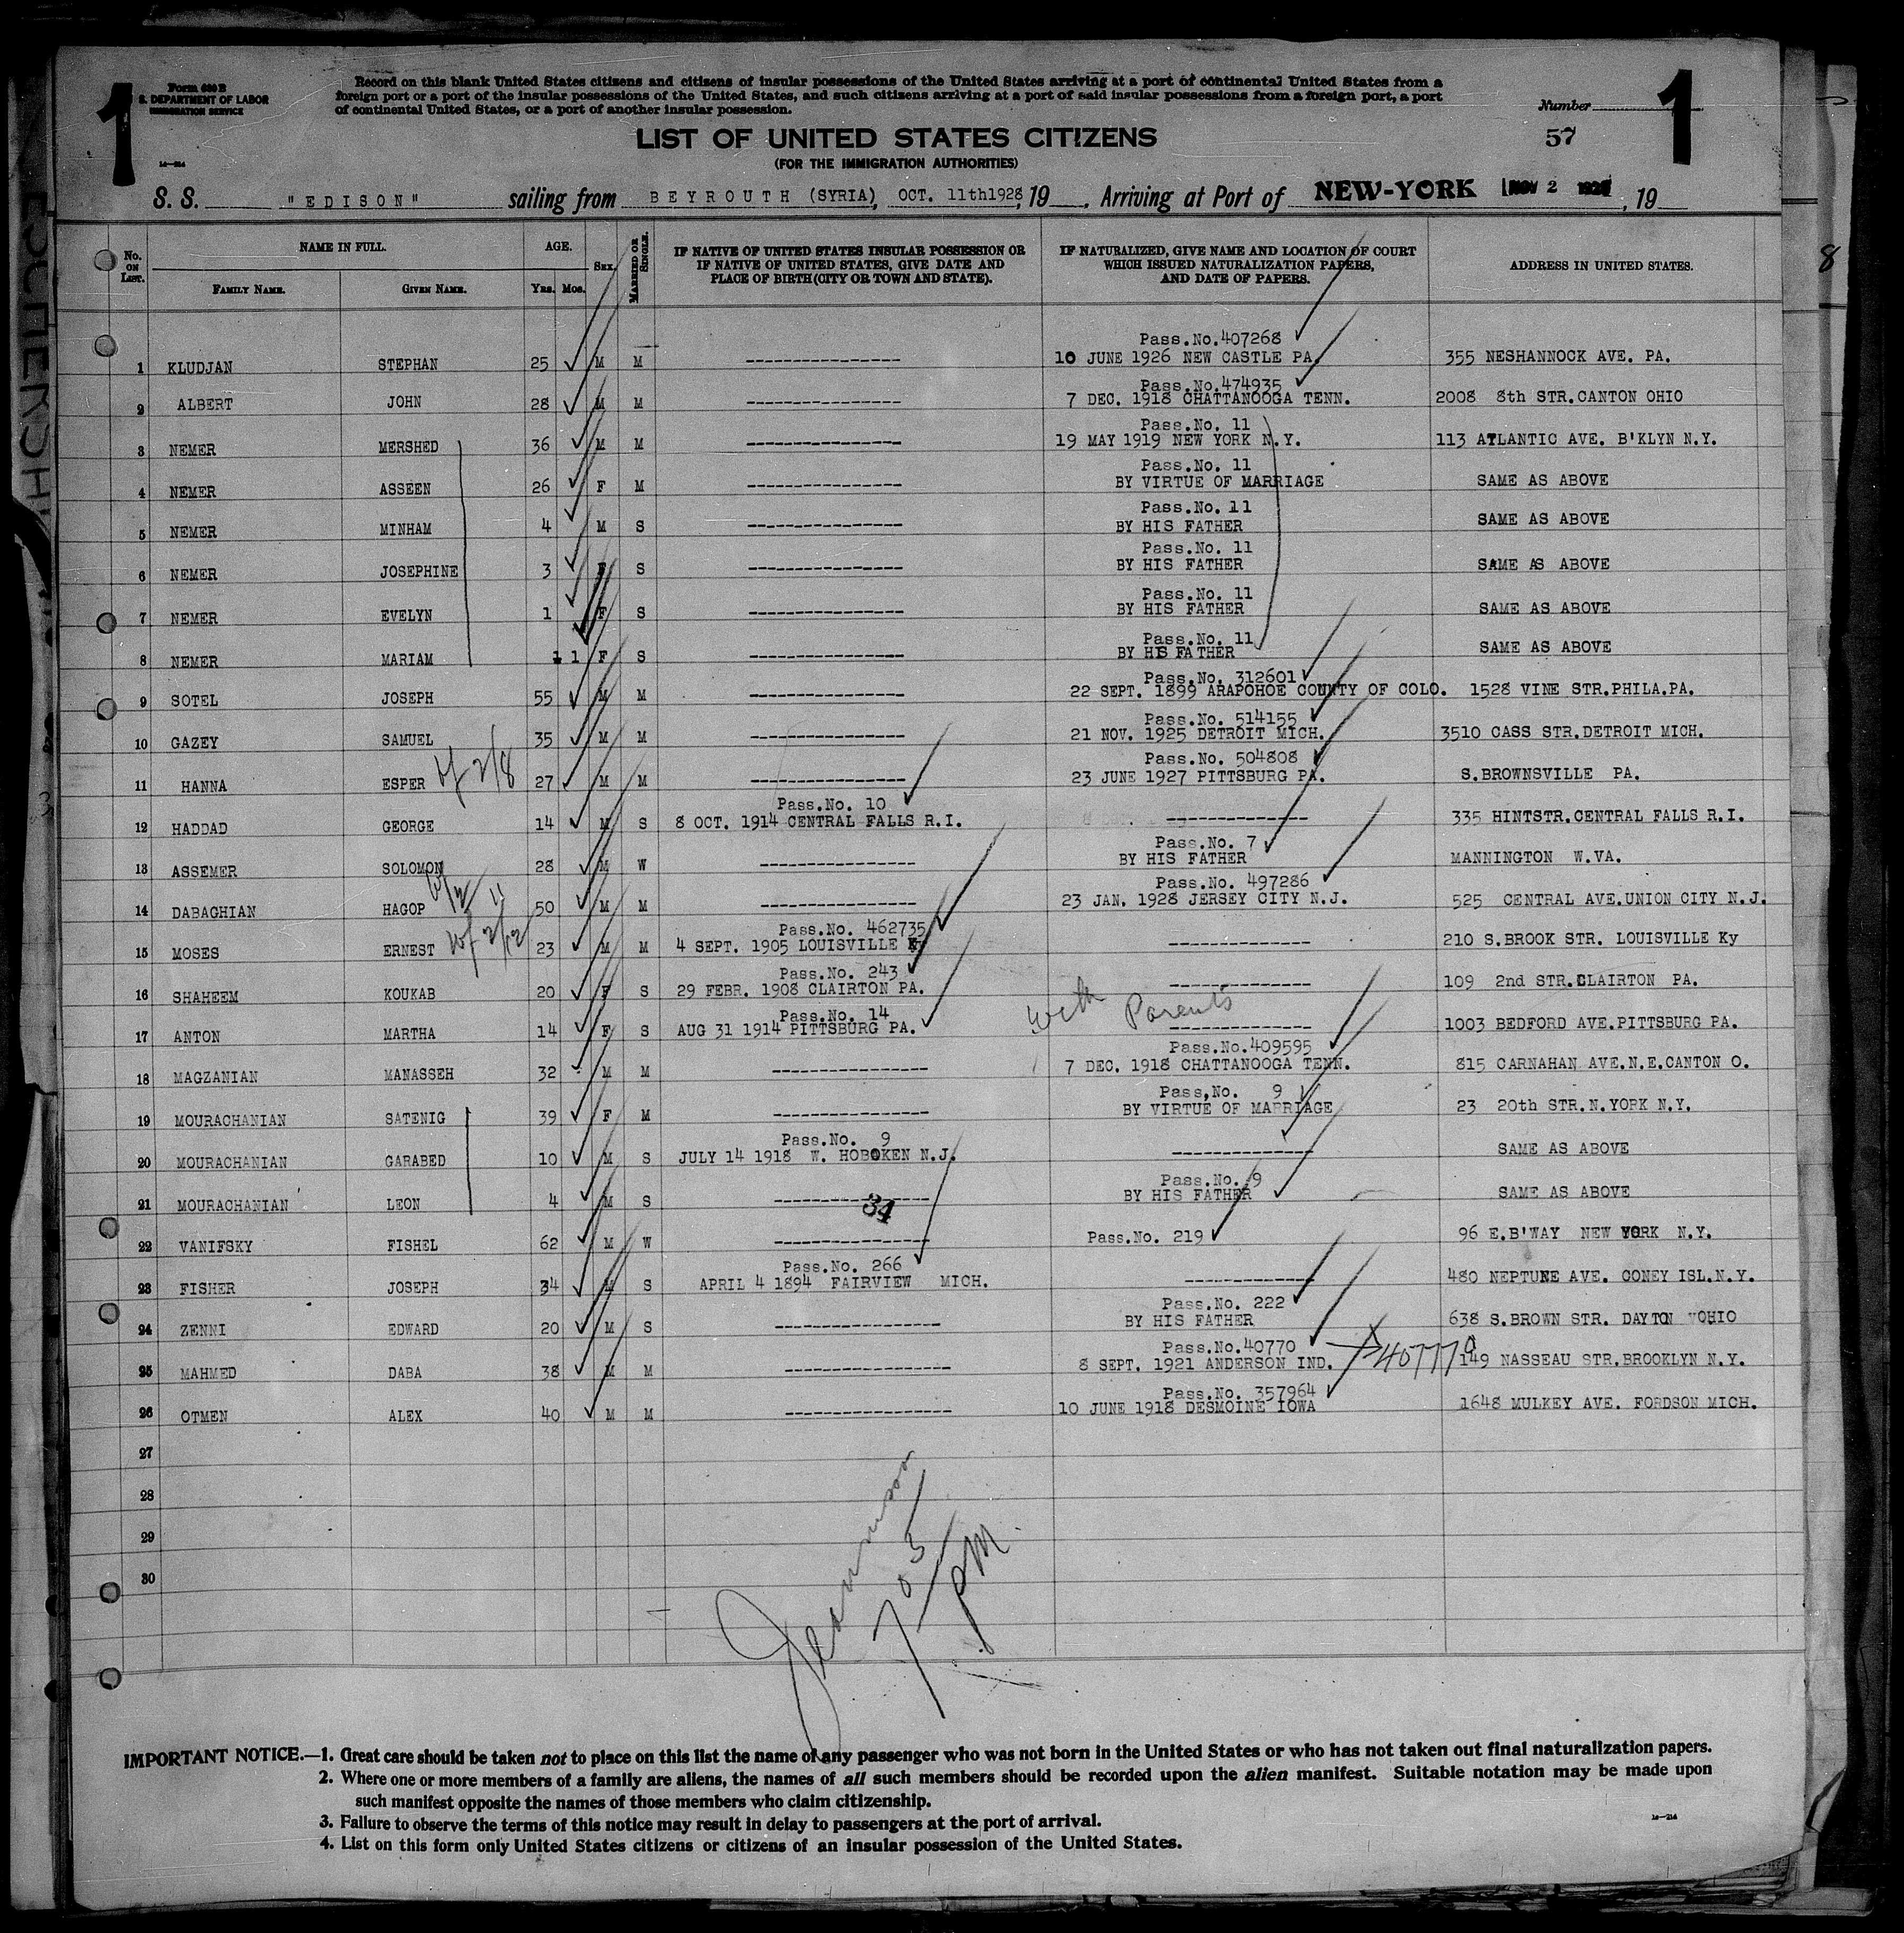 1
Form 630 B
S. DEPARTMENT OF LABOR
IMMIGRATION SERVICE
Record on this blank United States citizens and citizens of insular possessions of the United States arriving at a port of continental United States from a
foreign port or a port of the insular possessions of the United States, and such citizens arriving at a port of said insular possessions from a foreign port, a port
of continental United States, or a port of another insular possession.
Number
1
57
LIST OF UNITED STATES CITIZENS
(FOR THE IMMIGRATION AUTHORITIES)
S. S. "EDISON" sailing from BEYROUTH (SYRIA), OCT. 11th1928, 19 , Arriving at Port of NEW-YORK NOV 2 , 19
No. on List. NAME IN FULL. AGE. Sex. MARRIED OR SINGLE. IF NATIVE OF UNITED STATES INSULAR POSSESSION OR IF NATIVE OF UNITED STATES, GIVE DATE AND PLACE OF BIRTH (CITY OR TOWN AND STATE). IF NATURALIZED, GIVE NAME AND LOCATION OF COURT WHICH ISSUED NATURALIZATION PAPERS, AND DATE OF PAPERS. ADDRESS IN UNITED STATES.
FAMILY NAME. GIVEN NAME. Yrs. Mos.
8
Pass.No.407268
1 KLUDJAN STEPHAN 25 M M ---------------- 10 JUNE 1926 NEW CASTLE PA. 355 NESHANNOCK AVE. PA.
Pass.No.474935
2 ALBERT JOHN 28 M M ---------------- 7 DEC. 1918 CHATTANOOGA TENN. 2008 8th STR.CANTON OHIO
Pass.No. 11
3 NEMER MERSHED 36 M M ---------------- 19 MAY 1919 NEW YORK N.Y. 113 ATLANTIC AVE. B'KLYN N.Y.
Pass.No. 11
4 NEMER ASSEEN 26 F M ---------------- BY VIRTUE OF MARRIAGE SAME AS ABOVE
Pass.No. 11
5 NEMER MINHAM 4 M S ---------------- BY HIS FATHER SAME AS ABOVE
Pass.No. 11
6 NEMER JOSEPHINE 3 F S ---------------- BY HIS FATHER SAME AS ABOVE
Pass.No. 11
7 NEMER EVELYN 1 F S ---------------- BY HIS FATHER SAME AS ABOVE
Pass.No. 11
8 NEMER MARIAM 1 1 F S ---------------- BY HIS FATHER SAME AS ABOVE
Pass.No. 312601
9 SOTEL JOSEPH 55 M M ---------------- 22 SEPT. 1899 ARAPOHOE COUNTY OF COLO. 1528 VINE STR.PHILA.PA.
Pass.No. 514155
10 GAZEY SAMUEL 35 M M ---------------- 21 NOV. 1925 DETROIT MICH. 3510 CASS STR.DETROIT MICH.
Pass.No. 504808
11 HANNA ESPER 27 M M ---------------- 23 JUNE 1927 PITTSBURG PA. S.BROWNSVILLE PA.
Pass.No. 10
12 HADDAD GEORGE 14 M S 8 OCT. 1914 CENTRAL FALLS R.I. -------------- 335 HINTSTR.CENTRAL FALLS R.I.
Pass.No. 7
13 ASSEMER SOLOMON 28 M W ---------------- BY HIS FATHER MANNINGTON W.VA.
Pass.No. 497286
14 DABAGHIAN HAGOP 50 M M ---------------- 23 JAN. 1928 JERSEY CITY N.J. 525 CENTRAL AVE.UNION CITY N.J.
Pass.No. 462735
15 MOSES ERNEST 23 M M 4 SEPT. 1905 LOUISVILLE Ky -------------- 210 S.BROOK STR. LOUISVILLE Ky
Pass.No. 243
16 SHAHEEM KOUKAB 20 F S 29 FEBR. 1908 CLAIRTON PA. -------------- 109 2nd STR.CLAIRTON PA.
with Parents
Pass.No. 14
17 ANTON MARTHA 14 F S AUG 31 1914 PITTSBURG PA. -------------- 1003 BEDFORD AVE.PITTSBURG PA.
Pass.No.409595
18 MAGZANIAN MANASSEH 32 M M ---------------- 7 DEC. 1918 CHATTANOOGA TENN. 815 CARNAHAN AVE.N.E.CANTON O.
Pass,No. 9
19 MOURACHANIAN SATENIG 39 F M ---------------- BY VIRTUE OF MARRIAGE 23 20th STR.N.YORK N.Y.
Pass.No. 9
20 MOURACHANIAN GARABED 10 M S JULY 14 1918 W. HOBOKEN N.J. -------------- SAME AS ABOVE
Pass.No. 9
21 MOURACHANIAN LEON 4 M S ---------------- BY HIS FATHER SAME AS ABOVE
34
22 VANIFSKY FISHEL 62 M W ---------------- Pass.No. 219 96 E.B'WAY NEW YORK N.Y.
Pass.No. 266
23 FISHER JOSEPH 34 M S APRIL 4 1894 FAIRVIEW MICH. -------------- 480 NEPTUNE AVE. CONEY ISL.N.Y.
Pass.No. 222
24 ZENNI EDWARD 20 M S ----------------- BY HIS FATHER 638 S.BROWN STR. DAYTON OHIO
Pass.No.40770 407770
25 MAHMED DABA 38 M M ----------------- 8 SEPT. 1921 ANDERSON IND. 149 NASSEAU STR.BROOKLYN N.Y.
Pass.No. 357964
26 OTMEN ALEX 40 M M ----------------- 10 JUNE 1918 DESMOINE IOWA 1648 MULKEY AVE. FORDSON MICH.
27
28
29
30
703
PM
IMPORTANT NOTICE.—1. Great care should be taken not to place on this list the name of any passenger who was not born in the United States or who has not taken out final naturalization papers.
2. Where one or more members of a family are aliens, the names of all such members should be recorded upon the alien manifest. Suitable notation may be made upon
such manifest opposite the names of those members who claim citizenship.
3. Failure to observe the terms of this notice may result in delay to passengers at the port of arrival.
4. List on this form only United States citizens or citizens of an insular possession of the United States.